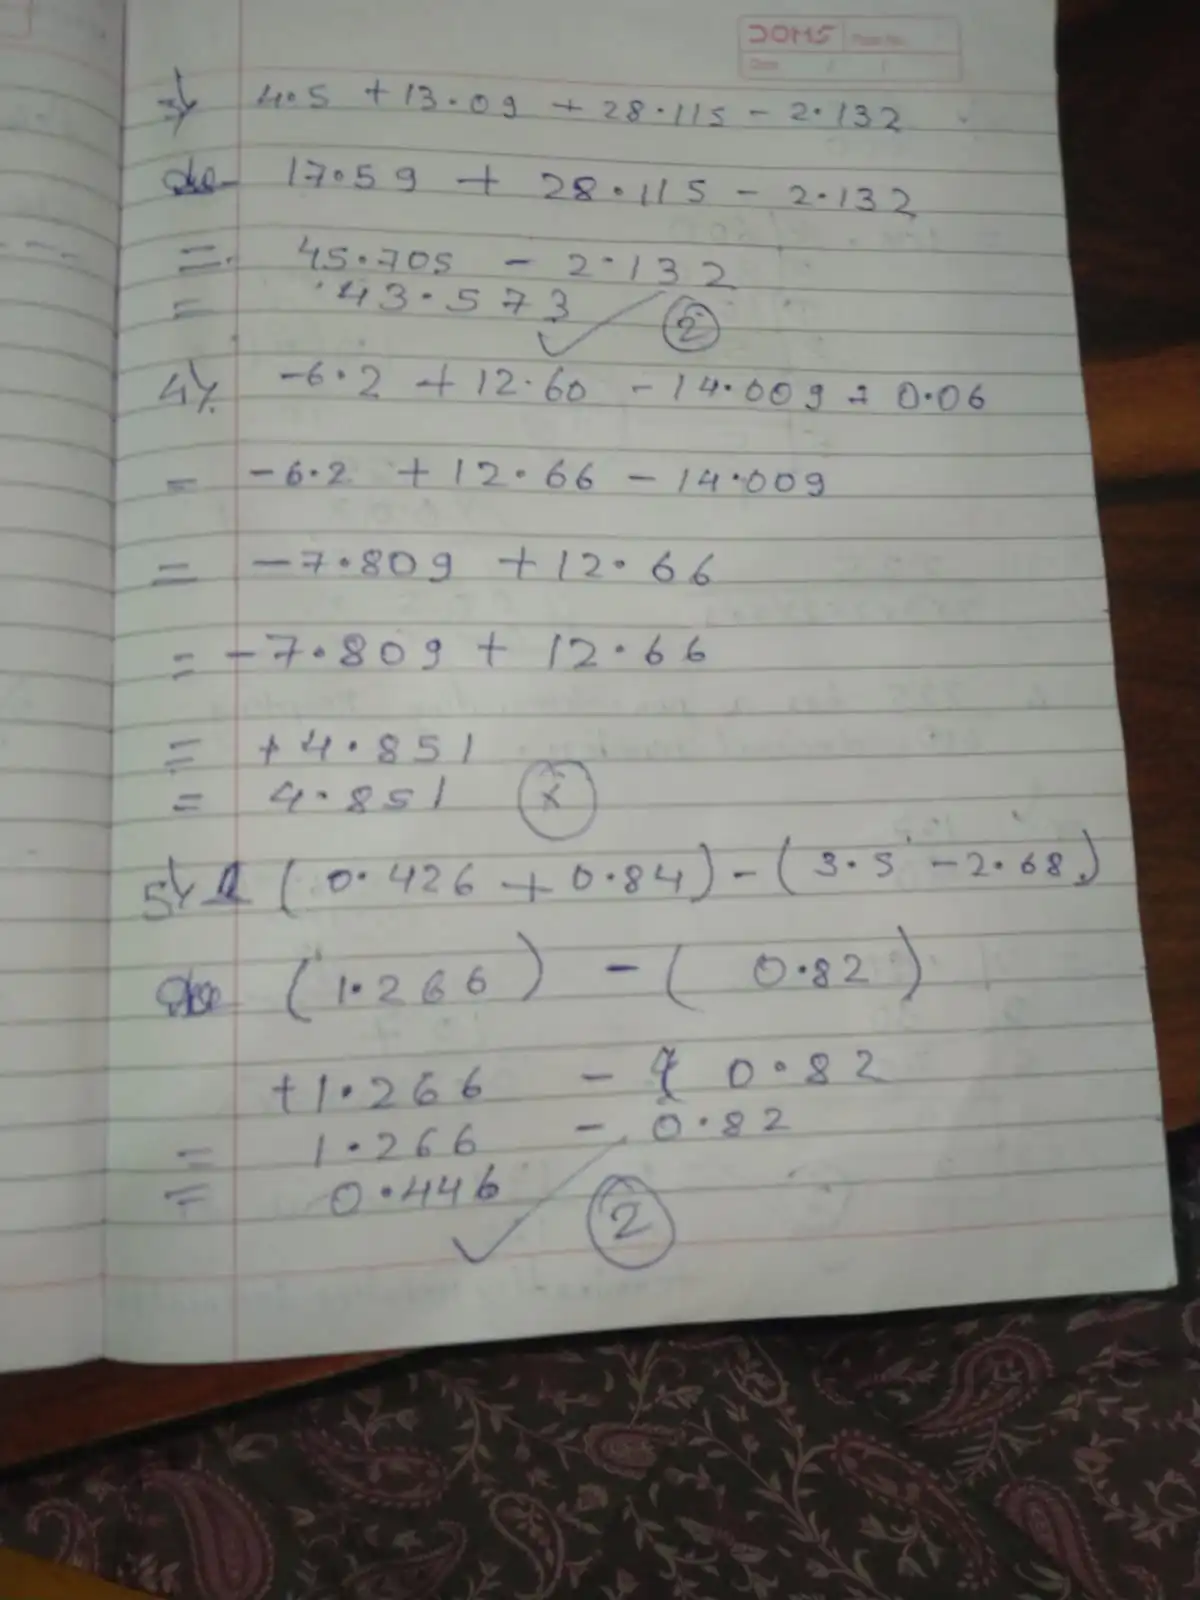 DOMS Page No.
Date / /
3) 4.5 + 13.09 + 28.115 - 2.132
17.59 + 28.115 - 2.132
= 45.705 - 2.132
= 43.573
2
4) -6.2 + 12.60 - 14.009 + 0.06
= -6.2 + 12.66 - 14.009
= -7.809 + 12.66
= -7.809 + 12.66
= +4.851
= 4.851
x
5) (0.426 + 0.84) - (3.5 - 2.68)
(1.266) - (0.82)
+1.266 - 0.82
= 1.266 - 0.82
= 0.446
2